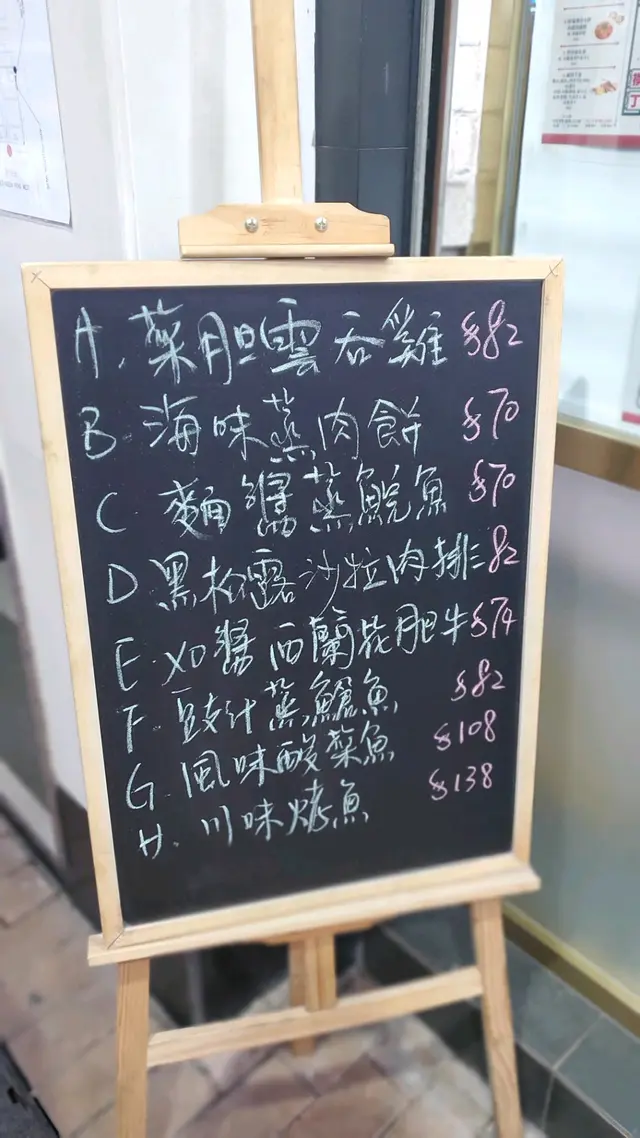 A. 菜胆雲吞雞 $82
B. 海味蒸肉餅 $70
C. 麵醬蒸鯇魚 $70
D. 黑松露沙拉肉排 82
E. XO醬西蘭花胆牛 $74
F. 豉汁蒸魚 $82
G. 風味酸菜魚 $108
H. 川味烤魚 $138